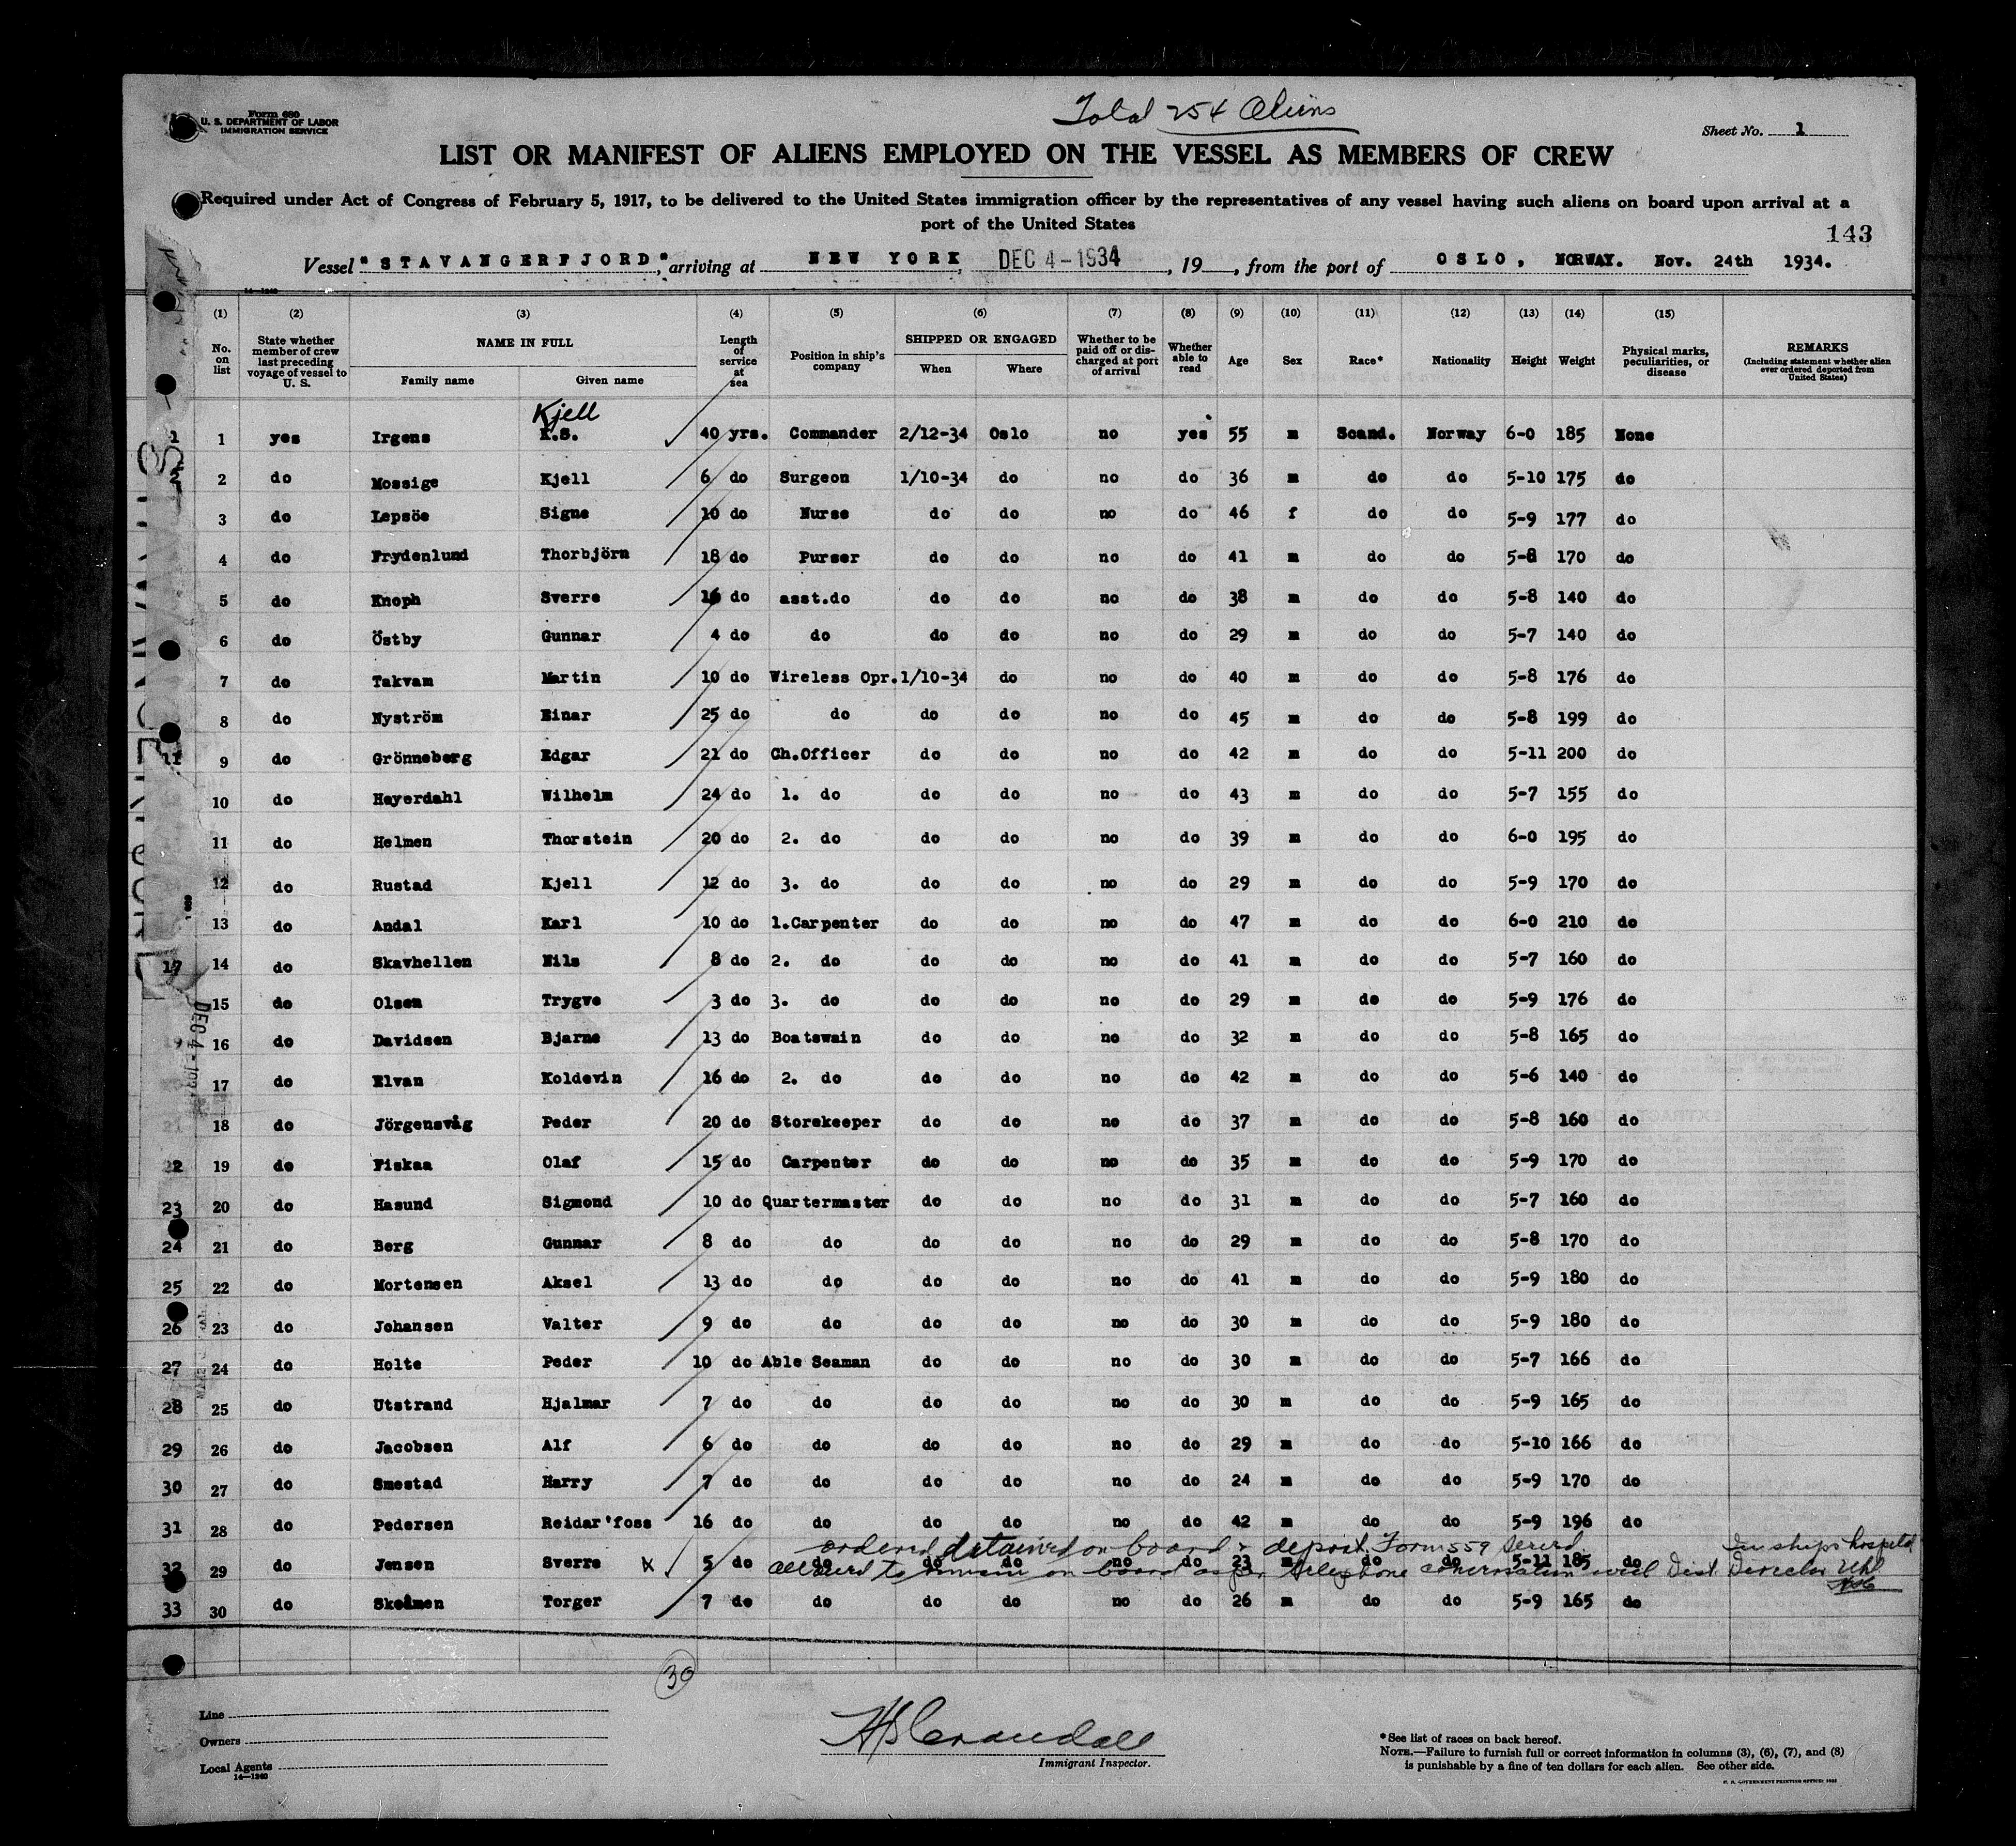 Form 689
U. S. DEPARTMENT OF LABOR
IMMIGRATION SERVICE
Total 254 Aliens
Sheet No. 1
LIST OR MANIFEST OF ALIENS EMPLOYED ON THE VESSEL AS MEMBERS OF CREW
Required under Act of Congress of February 5, 1917, to be delivered to the United States immigration officer by the representatives of any vessel having such aliens on board upon arrival at a
port of the United States
143
Vessel "STAVANGERFJORD", arriving at NEW YORK, DEC 4-1934, 19 , from the port of OSLO, NORWAY. Nov. 24th 1934.
(1) (2) (3) (4) (5) (6) (7) (8) (9) (10) (11) (12) (13) (14) (15)
No. on list State whether member of crew last preceding voyage of vessel to U. S. NAME IN FULL Family name Given name Length of service at sea Position in ship's company SHIPPED OR ENGAGED When Where Whether to be paid off or discharged at port of arrival Whether able to read Age Sex Race* Nationality Height Weight Physical marks, peculiarities, or disease REMARKS (Including statement whether alien ever ordered deported from United States)
Kjell
1 1 yes Irgens K.S. 40 yrs. Commander 2/12-34 Oslo no yes 55 m Scand. Norway 6-0 185 None
2 2 do Mossige Kjell 6 do Surgeon 1/10-34 do no do 36 m do do 5-10 175 do
3 do Lepsöe Signe 10 do Nurse do do no do 46 f do do 5-9 177 do
4 do Frydenlund Thorbjörn 18 do Purser do do no do 41 m do do 5-8 170 do
5 do Knoph Sverre 16 do asst.do do do no do 38 m do do 5-8 140 do
6 do Östby Gunnar 4 do do do do no do 29 m do do 5-7 140 do
7 do Takvam Martin 10 do Wireless Opr. 1/10-34 do no do 40 m do do 5-8 176 do
8 do Nyström Einar 25 do do do do no do 45 m do do 5-8 199 do
11 9 do Grönneberg Edgar 21 do Ch.Officer do do no do 42 m do do 5-11 200 do
10 do Heyerdahl Wilhelm 24 do 1. do do do no do 43 m do do 5-7 155 do
11 do Helmen Thorstein 20 do 2. do do do no do 39 m do do 6-0 195 do
12 do Rustad Kjell 12 do 3. do do do no do 29 m do do 5-9 170 do
13 do Andal Karl 10 do 1.Carpenter do do no do 47 m do do 6-0 210 do
17 14 do Skavhellen Nils 8 do 2. do do do no do 41 m do do 5-7 160 do
15 do Olsen Trygve 3 do 3. do do do no do 29 m do do 5-9 176 do
16 do Davidsen Bjarne 13 do Boatswain do do no do 32 m do do 5-8 165 do
17 do Elvan Koldevin 16 do 2. do do do no do 42 m do do 5-6 140 do
18 do Jörgensvåg Peder 20 do Storekeeper do do no do 37 m do do 5-8 160 do
22 19 do Fiskaa Olaf 15 do Carpenter do do no do 35 m do do 5-9 170 do
23 20 do Hasund Sigmond 10 do Quartermaster do do no do 31 m do do 5-7 160 do
24 21 do Berg Gunnar 8 do do do do no do 29 m do do 5-8 170 do
25 22 do Mortensen Aksel 13 do do do do no do 41 m do do 5-9 180 do
26 23 do Johansen Valter 9 do do do do no do 30 m do do 5-9 180 do
27 24 do Holte Peder 10 do Able Seaman do do no do 30 m do do 5-7 166 do
28 25 do Utstrand Hjalmar 7 do do do do no do 30 m do do 5-9 165 do
29 26 do Jacobsen Alf 6 do do do do no do 29 m do do 5-10 166 do
30 27 do Smestad Harry 7 do do do do no do 24 m do do 5-9 170 do
31 28 do Pedersen Reidar'foss 16 do do do do no do 42 m do do 5-9 196 do
ordered detained on board & deport. Form 559 served. In ships hospital
32 29 do Jensen Sverre x 5 do do do do no do 23 m do do 5-11 185 do
allowed to remain on board as per telephone conversation with Dist Director Uhl
33 30 do Torger 7 do do do do no do 26 m do do 5-9 165 do
DEC 4 -
30
Line
Owners
Local Agents
14—1240
HS Crandall
Immigrant Inspector.
*See list of races on back hereof.
NOTE.—Failure to furnish full or correct information in columns (3), (6), (7), and (8)
is punishable by a fine of ten dollars for each alien. See other side.
U. S. GOVERNMENT PRINTING OFFICE: 1932